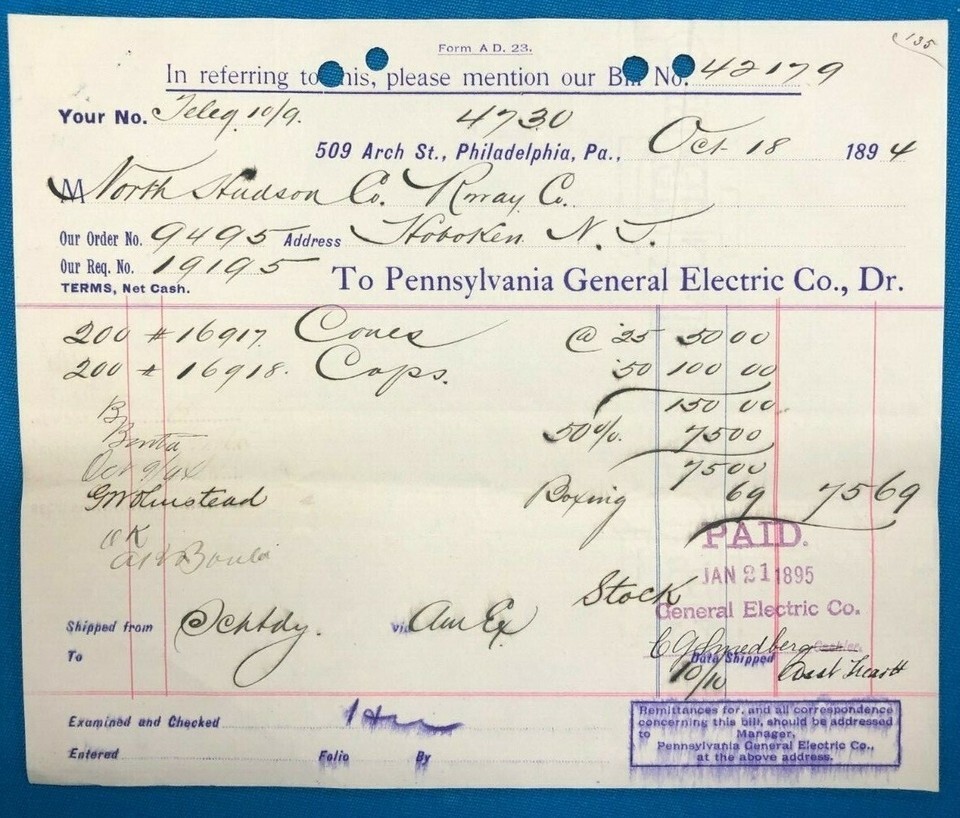 135
Form A D. 23.
In referring to this, please mention our Bill No. 42179
Your No. Teleg. 10/9. 4730
509 Arch St., Philadelphia, Pa., Oct 18 1894
M North Hudson Co. Rway Co.
Our Order No. 9495 Address Hoboken N. J.
Our Req. No. 19195
TERMS, Net Cash. To Pennsylvania General Electric Co., Dr.
200 # 16917. Cones @ 25 50 00
200 # 16918. Caps. 50 100 00
150 00
50%. 75 00
75 00
Oct 9/94
G W Olmstead Boxing 69 75 69
OK
PAID.
JAN 21 1895
Stock
General Electric Co.
Shipped from Schtdy. via Am Ex
C G Smedberg Cashier.
To Date Shipped
10/10
Examined and Checked
Entered Folio By
Remittances for, and all correspondence
concerning this bill, should be addressed
to Manager,
Pennsylvania General Electric Co.,
at the above address.